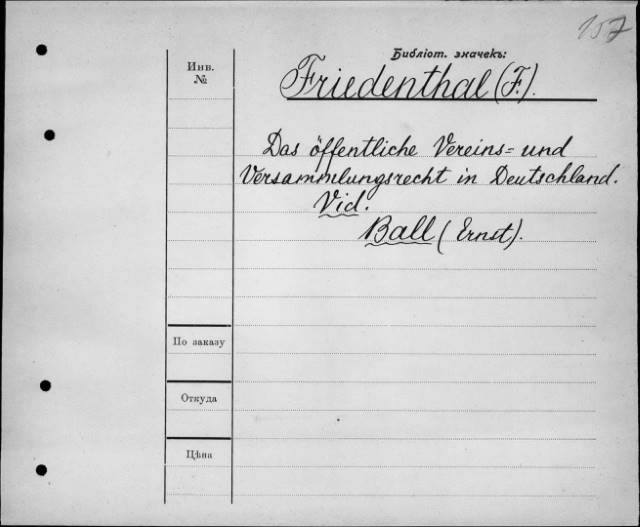 157
Библіот. значекъ:
Инв.
№
Friedenthal (F.).
Das öffentliche Vereins= und
Versammlungsrecht in Deutschland.
Vid.
Ball (Ernst).
По заказу
Откуда
Цѣна